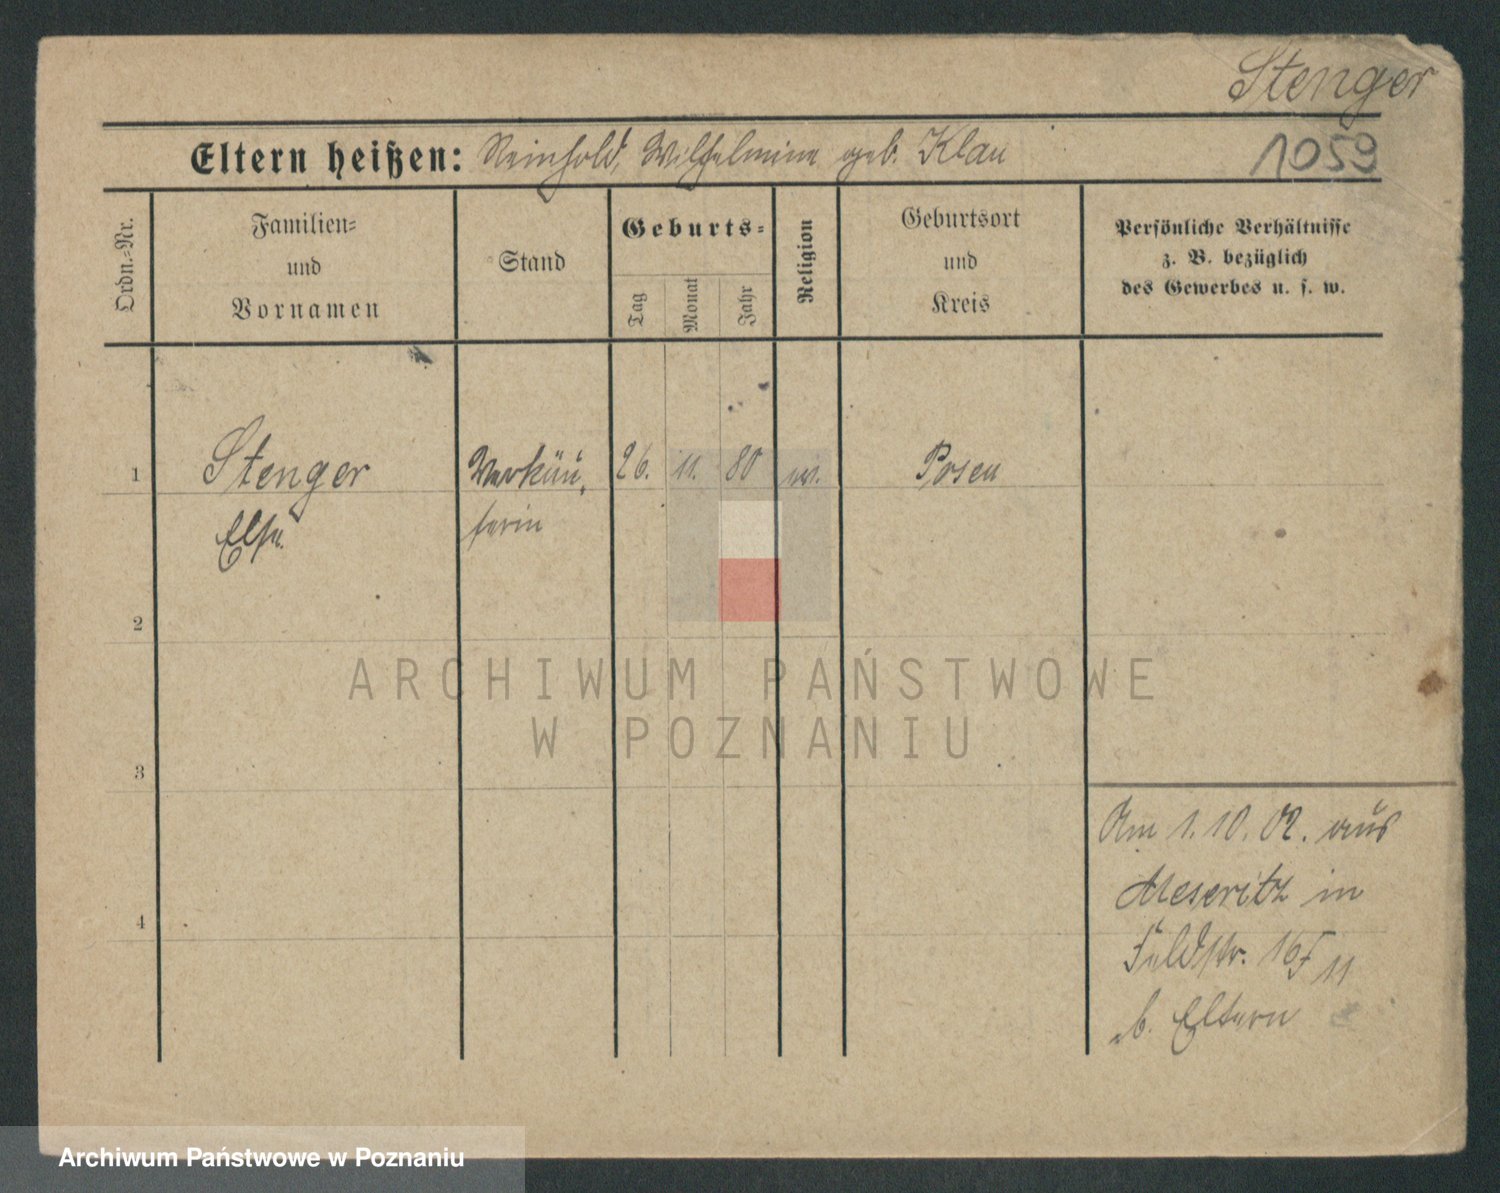 Stenger
1059
Eltern heißen: Reinhold, Wilhelmine geb. Klau
Ordn.-Nr.
Familien-
und
Vornamen
Stand
Geburts-
Tag
Monat
Jahr
Religion
Geburtsort
und
Kreis
Persönliche Verhältnisse
z. B. bezüglich
des Gewerbes u. s. w.
1 Stenger Verkäu- 26. 11. 80 ev. Posen
Else ferin
2
ARCHIWUM PAŃSTWOWE
W POZNANIU
3
Am 1.10.02. aus
Meseritz in
4
Feldstr. 11
b. Eltern
Archiwum Państwowe w Poznaniu